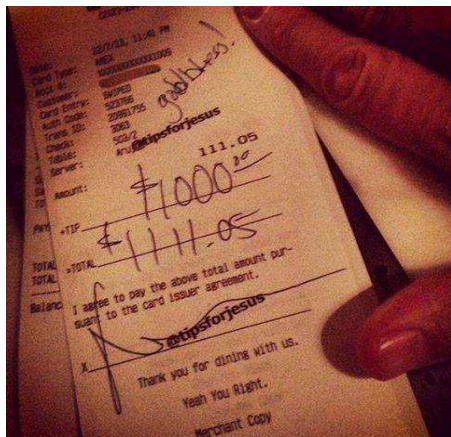 Date: 22/7/13, 11:41 PM
Card Type: AMEX
Acct #: XXXXXXXXXXX1009
Customer:
Card Entry: SWIPED
Auth Code: 523766
Trans ID: 20861755
Check: 3063
Table: 503/2
Server:
god bless!
@tipsforjesus
Amount: 111.05
+TIP $1000.00
=TOTAL $1111.05
I agree to pay the above total amount pur-
suant to the card issuer agreement.
@tipsforjesus
X
Thank you for dining with us.
Yeah You Right.
Merchant Copy
TOTAL
TOTAL
Balanc